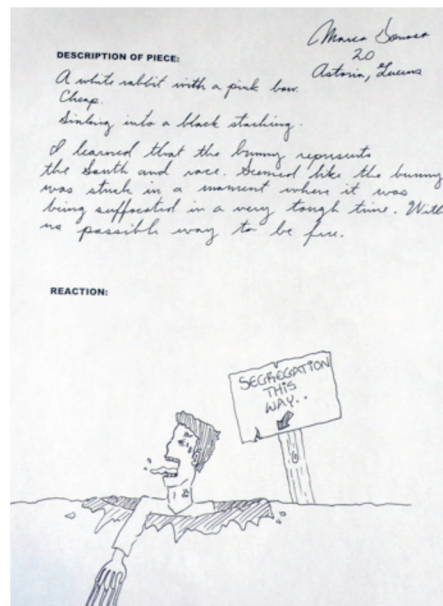 Marco Donoso
20
Astoria, Queens
DESCRIPTION OF PIECE:
A white rabbit with a pink bow.
Cheap.
Sinking into a black stocking.
I learned that the bunny represents
the South and race. Seemed like the bunny
was stuck in a moment where it was
being suffocated in a very tough time. With
no possible way to be free.
REACTION:
SEGREGATION
THIS
WAY..